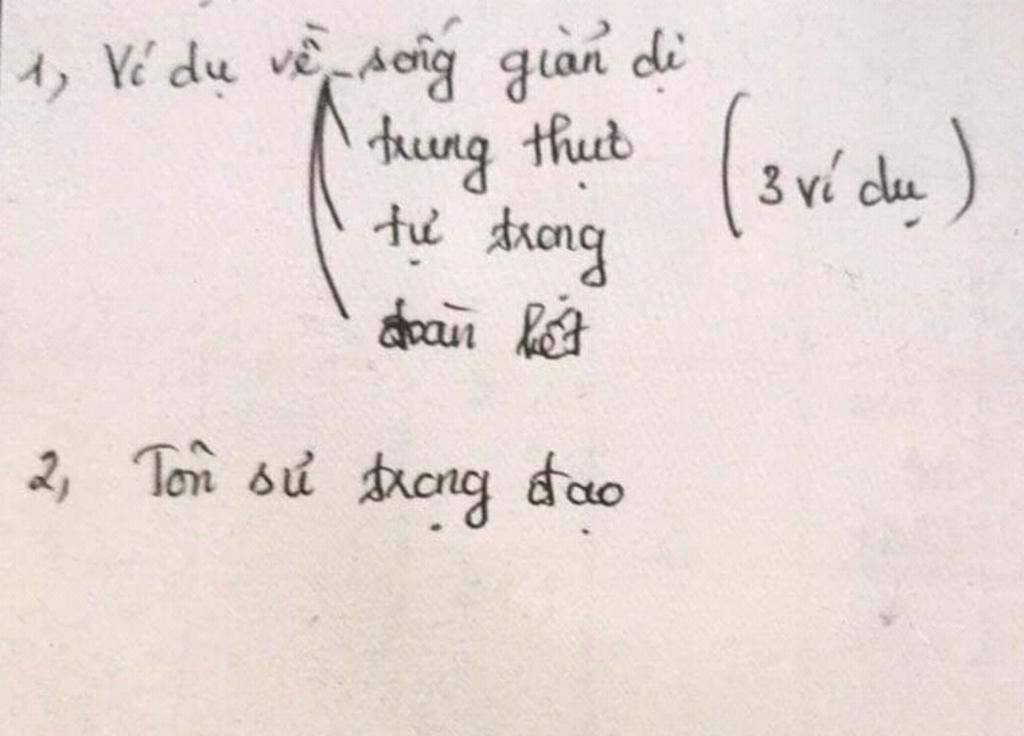 1, Ví dụ về sống giản dị
trung thực
(3 ví dụ)
tự trong
đoàn kết
2, Tôn sư trọng đạo